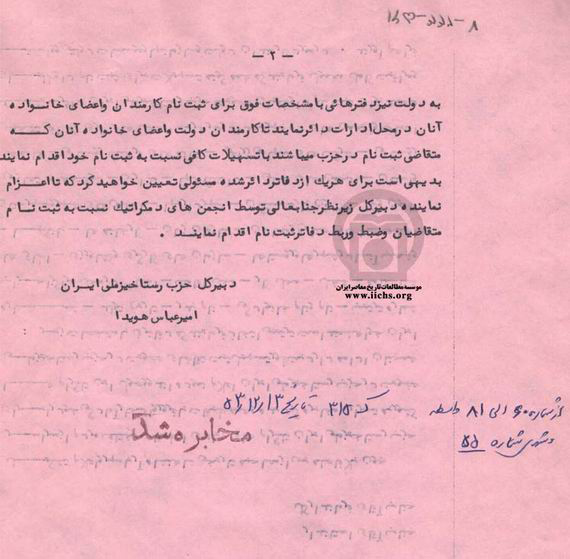 ۸-۲۲۸-۱۲۳
— ۲ —
به دولت نیزدفترهائی بامشخصات فوق برای ثبت نام کارمندان واعضای خانواده
آنان درمحل ادارات دائرنمایند تاکارمندان دولت واعضای خانواده آنان کـــه
متقاضی ثبت نام درحزب میباشند باتسهیلات کافی نسبت به ثبت نام خوداقدام نمایند
بدیهی است برای هریک ازدفاتردائرشده مسئولی تعیین خواهید کرد که تااعـزام
نماینده دبیرکل زیرنظرجنابعالی توسط انجمن های دمکراتیک نسبت به ثبت نـام
متقاضیان وضبط وربط دفاترثبت نام اقدام نماینـد .
دبیرکل حزب رستاخیزملی ایران
امیرعباس هویدا
موسسه مطالعات تاریخ معاصر ایران
www.iichs.org
کد ۳۱۵ تاریخ ۵۳/۱۲/۱۳
مخابره شد
ازشماره ۶۰ الی ۸۱
شماره ۵۵